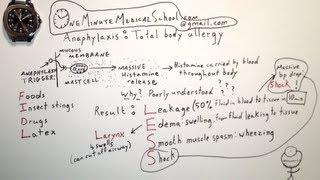 OneMinuteMedicalSchool.com
@gmail.com
Anaphylaxis = Total body allergy
MUCOUS
MEMBRANE
ANAPHYLAXIS
TRIGGER
MAST CELL
MASSIVE
Histamine
release
Histamine carried by blood
throughout body
Why? Poorly understood ???
Foods
Insect stings
Drugs
Latex
Result:
Leakage (50% fluid in blood to tissue in
10 min)
Edema: swelling from fluid leaking to tissue
Smooth muscle spasm: wheezing
Shock
Larynx
swells
(can cut off airway)
Massive
bp drop =
Shock